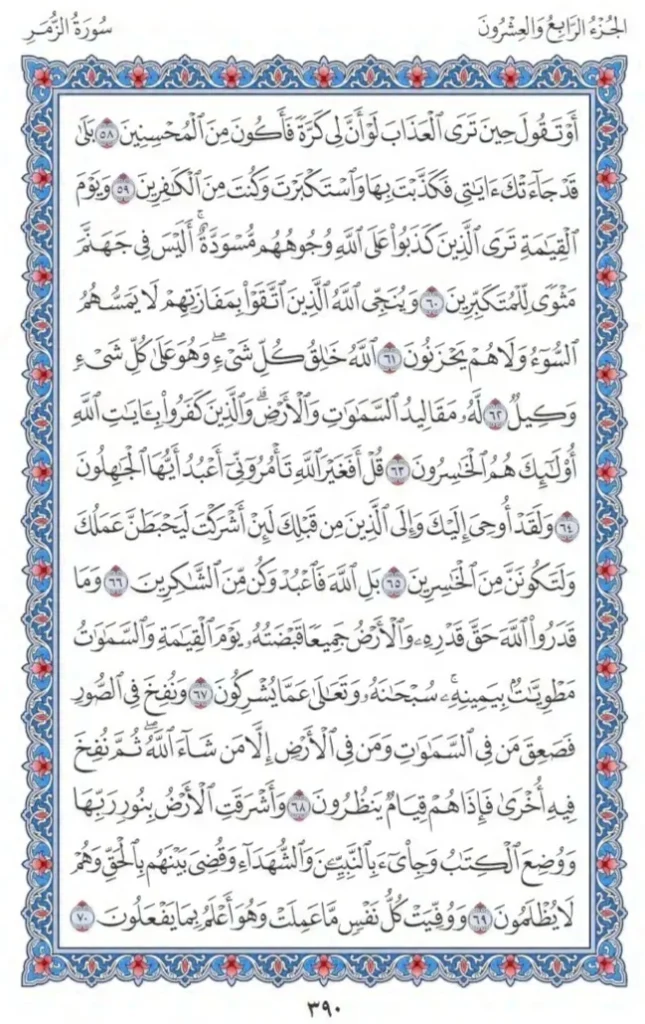 الجُزْءُ الرَّابِعُ وَالعِشْرُونَ
سُورَةُ الزُّمَرِ
أَوْ تَقُولَ حِينَ تَرَى ٱلْعَذَابَ لَوْ أَنَّ لِى كَرَّةً فَأَكُونَ مِنَ ٱلْمُحْسِنِينَ ٥٨ بَلَىٰ
قَدْ جَآءَتْكَ ءَايَٰتِى فَكَذَّبْتَ بِهَا وَٱسْتَكْبَرْتَ وَكُنتَ مِنَ ٱلْكَٰفِرِينَ ٥٩ وَيَوْمَ
ٱلْقِيَٰمَةِ تَرَى ٱلَّذِينَ كَذَبُوا۟ عَلَى ٱللَّهِ وُجُوهُهُم مُّسْوَدَّةٌ ۚ أَلَيْسَ فِى جَهَنَّمَ
مَثْوًى لِّلْمُتَكَبِّرِينَ ٦٠ وَيُنَجِّى ٱللَّهُ ٱلَّذِينَ ٱتَّقَوْا۟ بِمَفَازَتِهِمْ لَا يَمَسُّهُمُ
ٱلسُّوٓءُ وَلَا هُمْ يَحْزَنُونَ ٦١ ٱللَّهُ خَٰلِقُ كُلِّ شَىْءٍ ۖ وَهُوَ عَلَىٰ كُلِّ شَىْءٍ
وَكِيلٌ ٦٢ لَّهُۥ مَقَالِيدُ ٱلسَّمَٰوَٰتِ وَٱلْأَرْضِ ۗ وَٱلَّذِينَ كَفَرُوا۟ بِـَٔايَٰتِ ٱللَّهِ
أُو۟لَٰٓئِكَ هُمُ ٱلْخَٰسِرُونَ ٦٣ قُلْ أَفَغَيْرَ ٱللَّهِ تَأْمُرُوٓنِّىٓ أَعْبُدُ أَيُّهَا ٱلْجَٰهِلُونَ
٦٤ وَلَقَدْ أُوحِىَ إِلَيْكَ وَإِلَى ٱلَّذِينَ مِن قَبْلِكَ لَئِنْ أَشْرَكْتَ لَيَحْبَطَنَّ عَمَلُكَ
وَلَتَكُونَنَّ مِنَ ٱلْخَٰسِرِينَ ٦٥ بَلِ ٱللَّهَ فَٱعْبُدْ وَكُن مِّنَ ٱلشَّٰكِرِينَ ٦٦ وَمَا
قَدَرُوا۟ ٱللَّهَ حَقَّ قَدْرِهِۦ وَٱلْأَرْضُ جَمِيعًا قَبْضَتُهُۥ يَوْمَ ٱلْقِيَٰمَةِ وَٱلسَّمَٰوَٰتُ
مَطْوِيَّٰتٌۢ بِيَمِينِهِۦ ۚ سُبْحَٰنَهُۥ وَتَعَٰلَىٰ عَمَّا يُشْرِكُونَ ٦٧ وَنُفِخَ فِى ٱلصُّورِ
فَصَعِقَ مَن فِى ٱلسَّمَٰوَٰتِ وَمَن فِى ٱلْأَرْضِ إِلَّا مَن شَآءَ ٱللَّهُ ۖ ثُمَّ نُفِخَ
فِيهِ أُخْرَىٰ فَإِذَا هُمْ قِيَامٌ يَنظُرُونَ ٦٨ وَأَشْرَقَتِ ٱلْأَرْضُ بِنُورِ رَبِّهَا
وَوُضِعَ ٱلْكِتَٰبُ وَجِا۟ىٓءَ بِٱلنَّبِيِّـۧنَ وَٱلشُّهَدَآءِ وَقُضِىَ بَيْنَهُم بِٱلْحَقِّ وَهُمْ
لَا يُظْلَمُونَ ٦٩ وَوُفِّيَتْ كُلُّ نَفْسٍ مَّا عَمِلَتْ وَهُوَ أَعْلَمُ بِمَا يَفْعَلُونَ ٧٠
٣٩٠